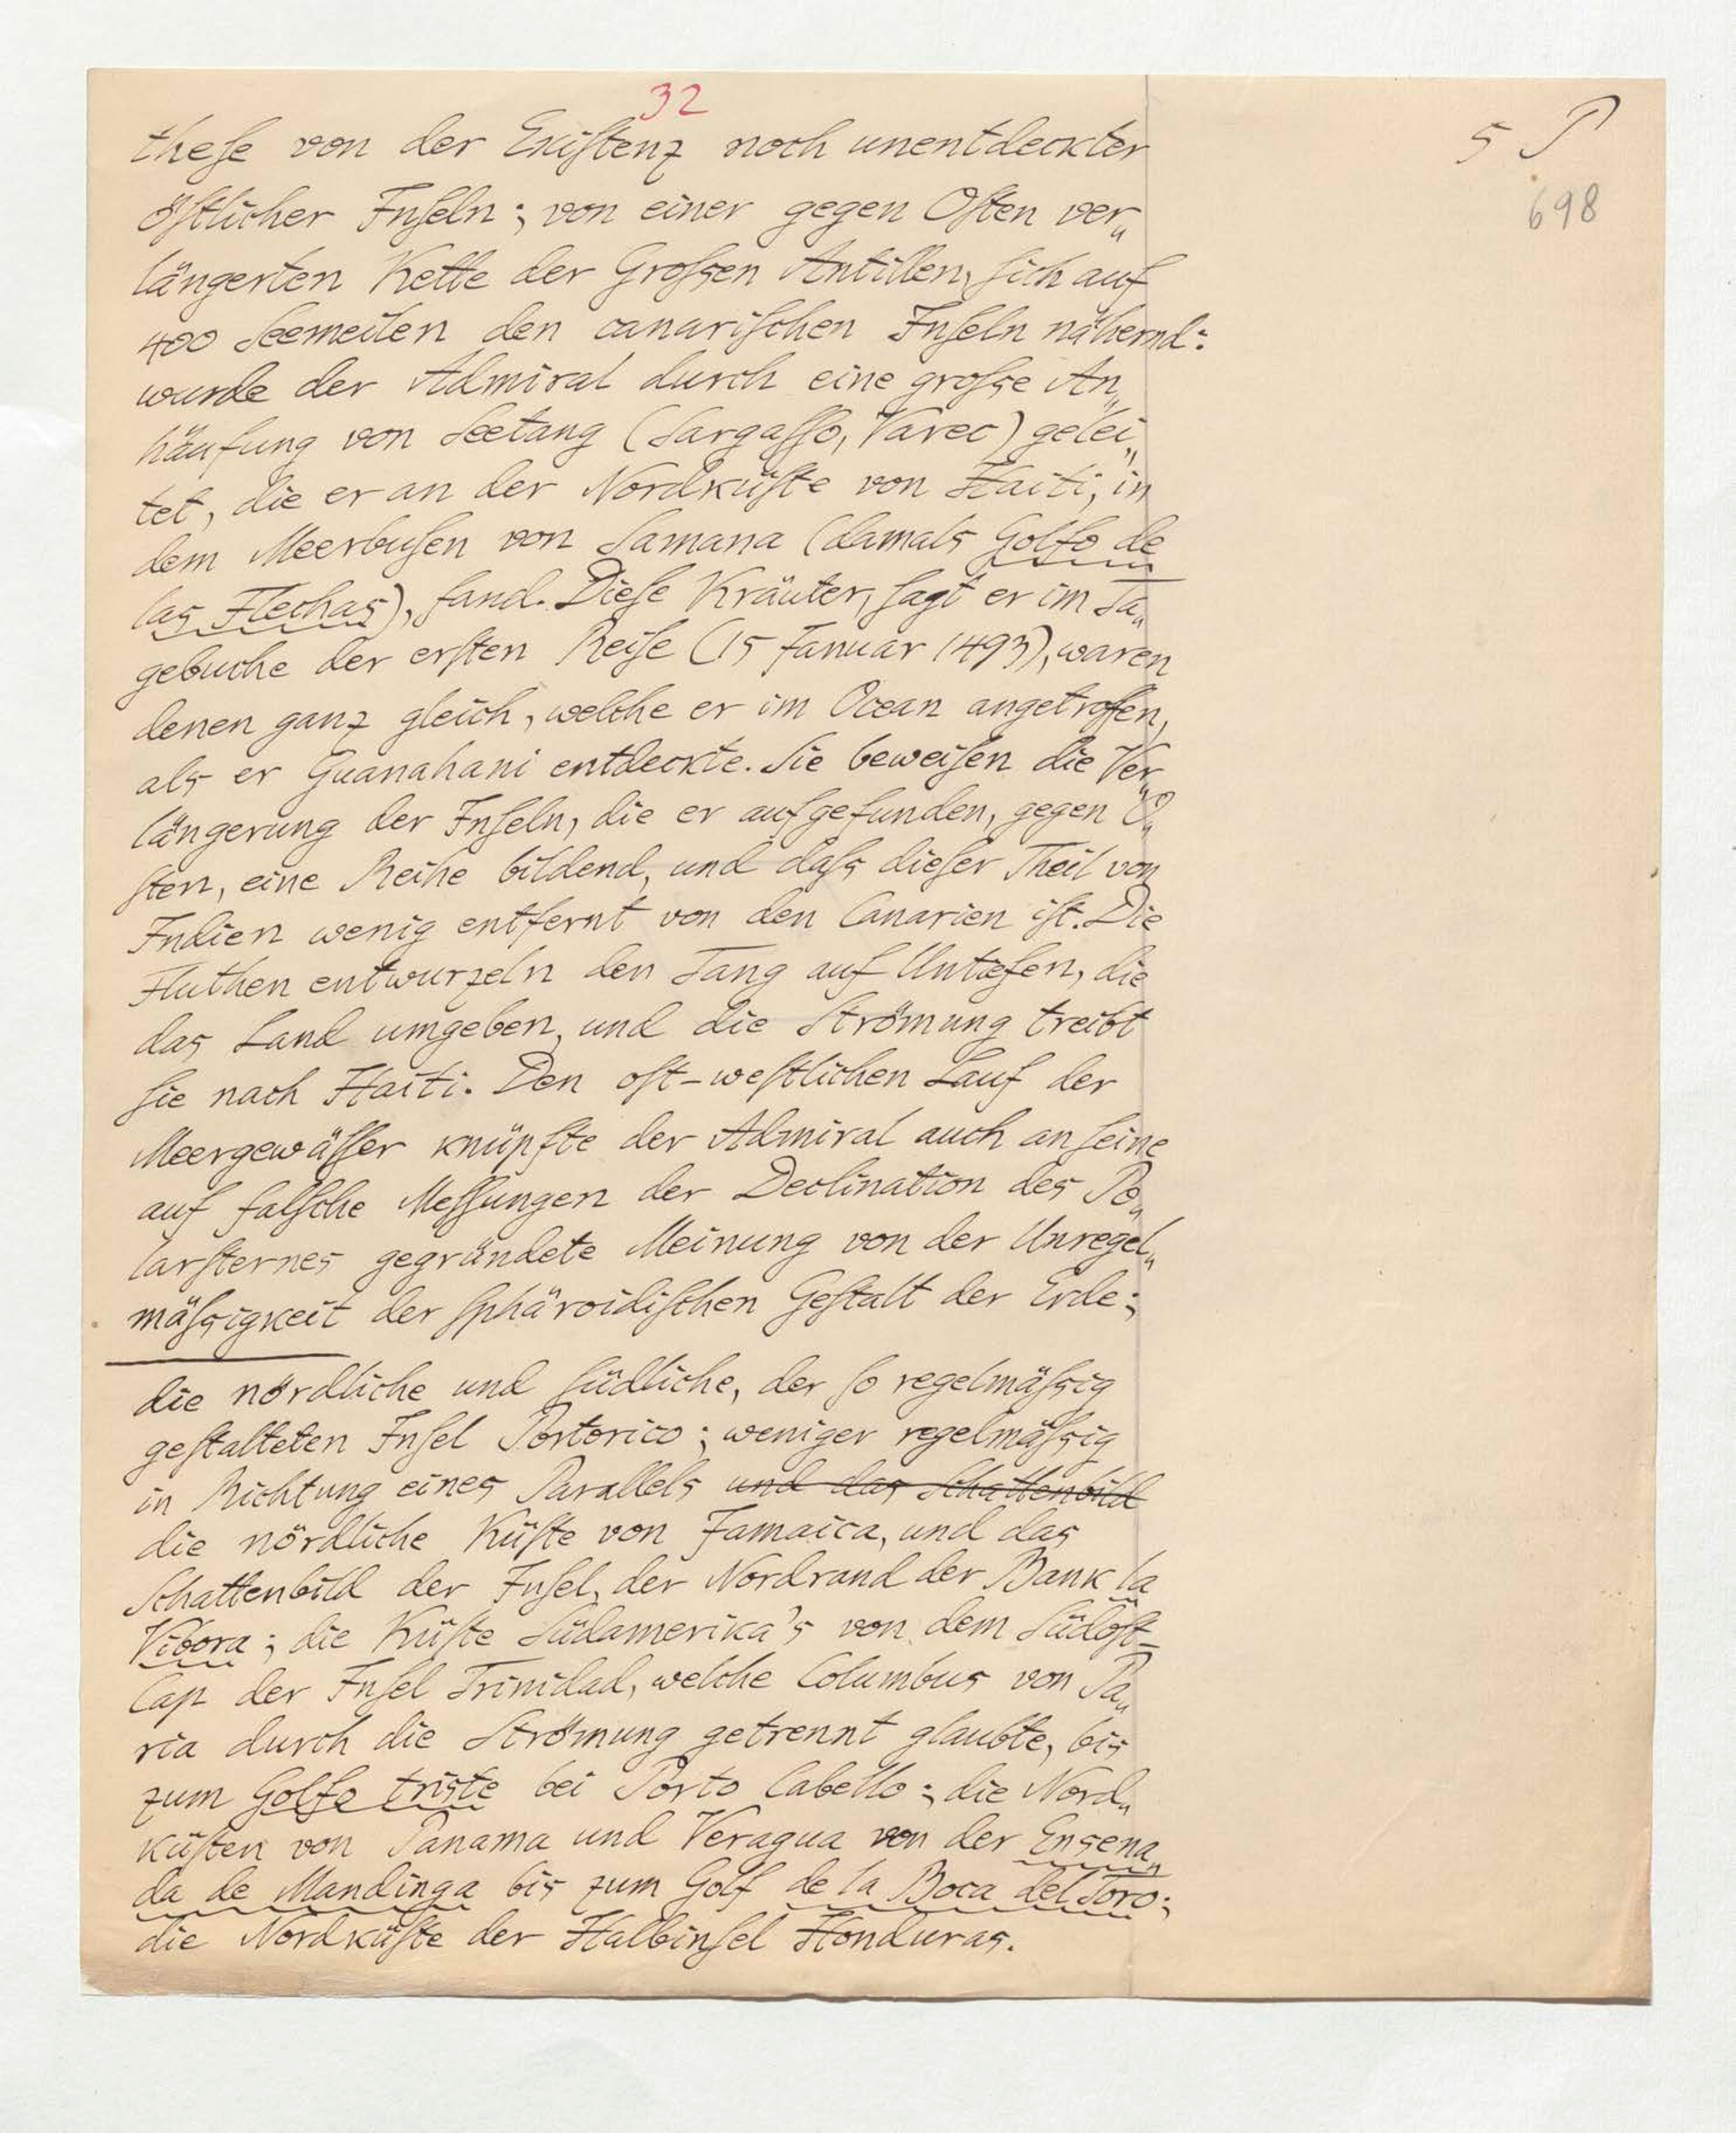 32
5 P
698
theſe von der Exiſtenz noch unentdeckter
öſtlicher Inſeln; von einer gegen Oſten ver„
längerten Kette der Groſsen Antillen, ſich auf
400 Seemeilen den canariſchen Inſeln nähernd:
wurde der Admiral durch eine groſse An„
häufung von Seetang (Sargaſſo, Varec) gelei„
tet, die er an der Nordküſte von Haiti, in
dem Meerbuſen von Samana (damals Golfo de
las Flechas), fand. Dieſe Kräuter, ſagt er im Ta„
gebuche der erſten Reiſe (15 Januar 1493), waren
denen ganz gleich, welche er im Ocean angetroffen,
als er Guanahani entdeckte. Sie beweiſen die Ver„
längerung der Inſeln, die er aufgefunden, gegen O„
ſten, eine Reihe bildend, und daſs dieſer Theil von
Indien wenig entfernt von den Canarien iſt. Die
Fluthen entwurzeln den Tang auf Untiefen, die
das Land umgeben, und die Strömung treibt
ſie nach Haiti. Den oſt-weſtlichen Lauf der
Meergewäſſer knüpfte der Admiral auch an ſeine
auf falſche Meſſungen der Declination des Po„
larſternes gegründete Meinung von der Unregel„
mäſsigkeit der ſphäroidiſchen Geſtalt der Erde;
die nördliche und ſüdliche, der ſo regelmäſsig
geſtalteten Inſel Portorico; weniger regelmäſsig
in Richtung eines Parallels und das Schattenbild
die nördliche Küſte von Jamaica, und das
Schattenbild der Inſel, der Nordrand der Bank la
Vibora; die Küſte Südamerika's von dem Südoſt-
Cap der Inſel Trinidad, welche Columbus von Pa„
ria durch die Strömung getrennt glaubte, bis
zum Golfo triste bei Porto Cabello; die Nord„
küſten von Panama und Veragua von der Ensena„
da de Mandinga bis zum Golf de la Boca del Toro;
die Nordküſte der Halbinſel Honduras.